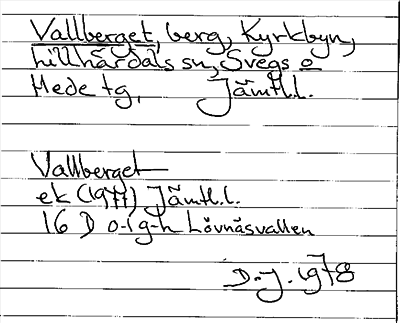 Vallberget, berg, Kyrkbyn,
Lillhärdals sn, Svegs o
Hede tg, Jämtl.l.
Vallberget
ek (1977) Jämtl.l.
16 D 0-1g-h Lövnäsvallen
D.J. 1978